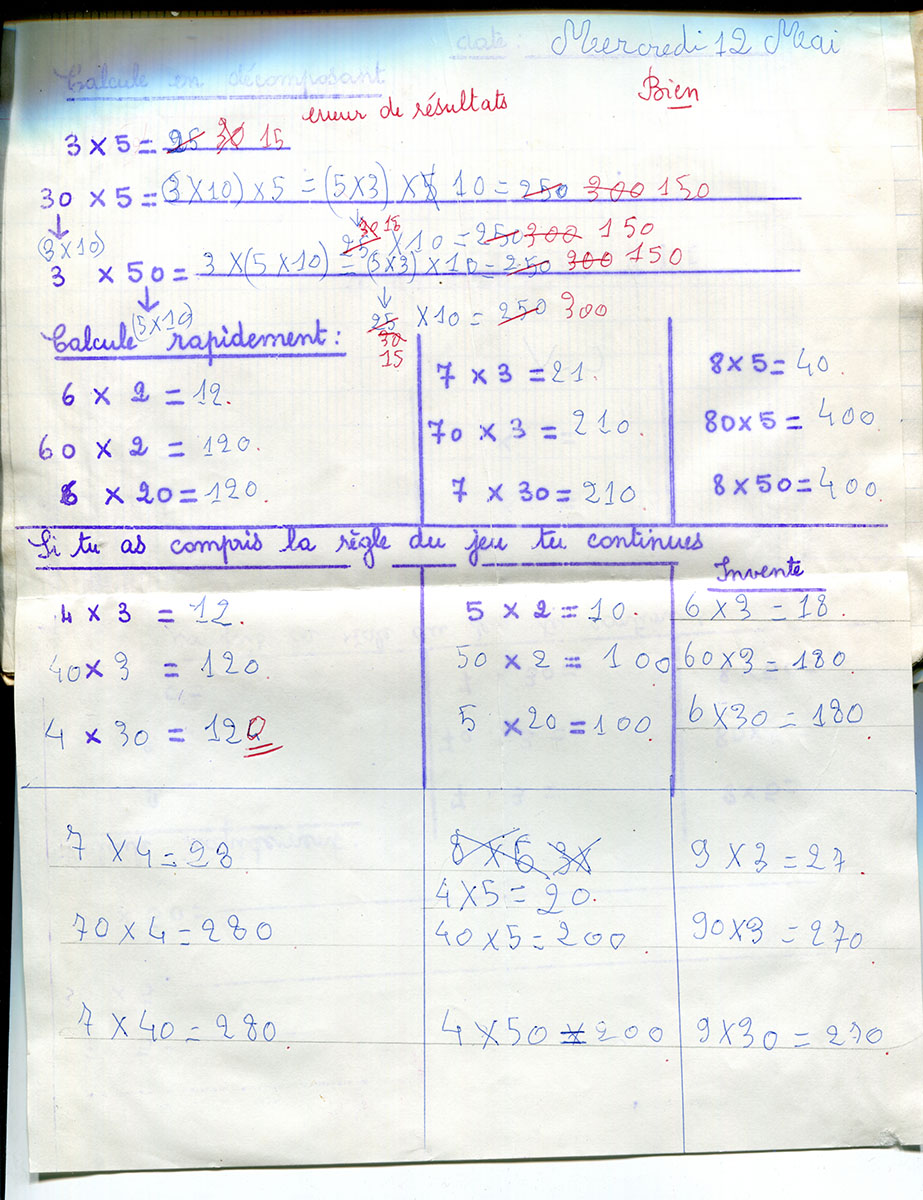 date : Mercredi 12 Mai
Calcule en décomposant
erreur de résultats Bien
3 x 5 = 25 30 15
30 x 5 = (3 x 10) x 5 = (5 x 3) x 5 10 = 250 300 150
(3 x 10)
25 30 15 x 10 = 250 300 150
3 x 50 = 3 x (5 x 10) = (5 x 3) x 10 = 250 300 150
(5 x 10)
25 30 15 x 10 = 250 300
Calcule rapidement :
6 x 2 = 12.
60 x 2 = 120.
6 x 20 = 120.
7 x 3 = 21.
70 x 3 = 210.
7 x 30 = 210
8 x 5 = 40.
80 x 5 = 400
8 x 50 = 400.
Si tu as compris la règle du jeu tu continues
4 x 3 = 12.
40 x 3 = 120
4 x 30 = 120
5 x 2 = 10.
50 x 2 = 100
5 x 20 = 100.
Invente
6 x 3 = 18.
60 x 3 = 180
6 x 30 = 180
7 x 4 = 28
70 x 4 = 280
7 x 40 = 280
8 x 6 3x
4 x 5 = 20.
40 x 5 = 200
4 x 50 = 200
9 x 3 = 27
90 x 3 = 270
9 x 30 = 270